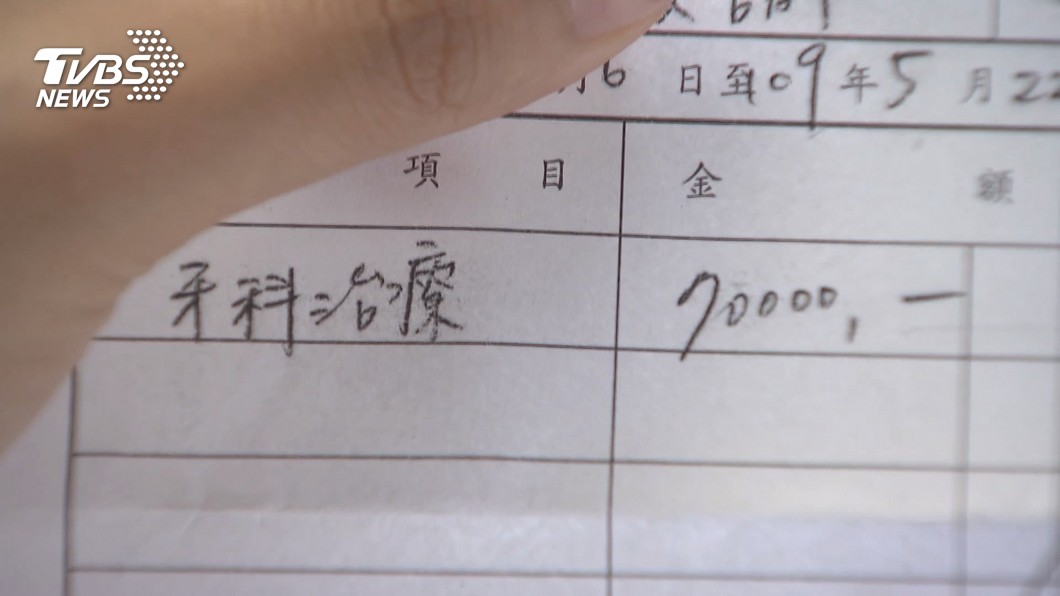 TVBS
NEWS
月6 日到09年5月22
項目 金額
牙科治療 70000,一